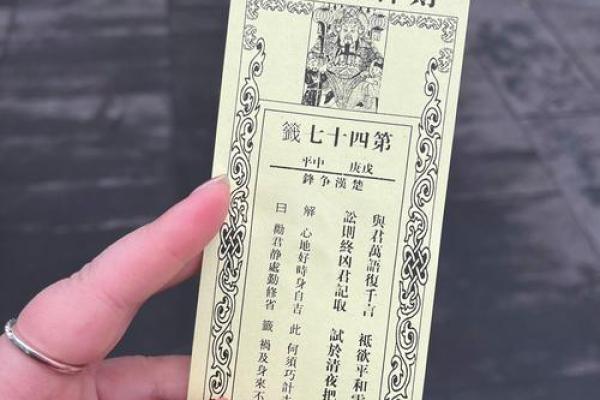 第四十七籤
庚戌 中平
楚漢爭鋒
與君萬語復千言 祗欲平和
訟則終凶君記取 試於清夜把
解 心地好時身自吉 此 何須巧計
曰 勸君靜處勤修省 籤 禍及身來不